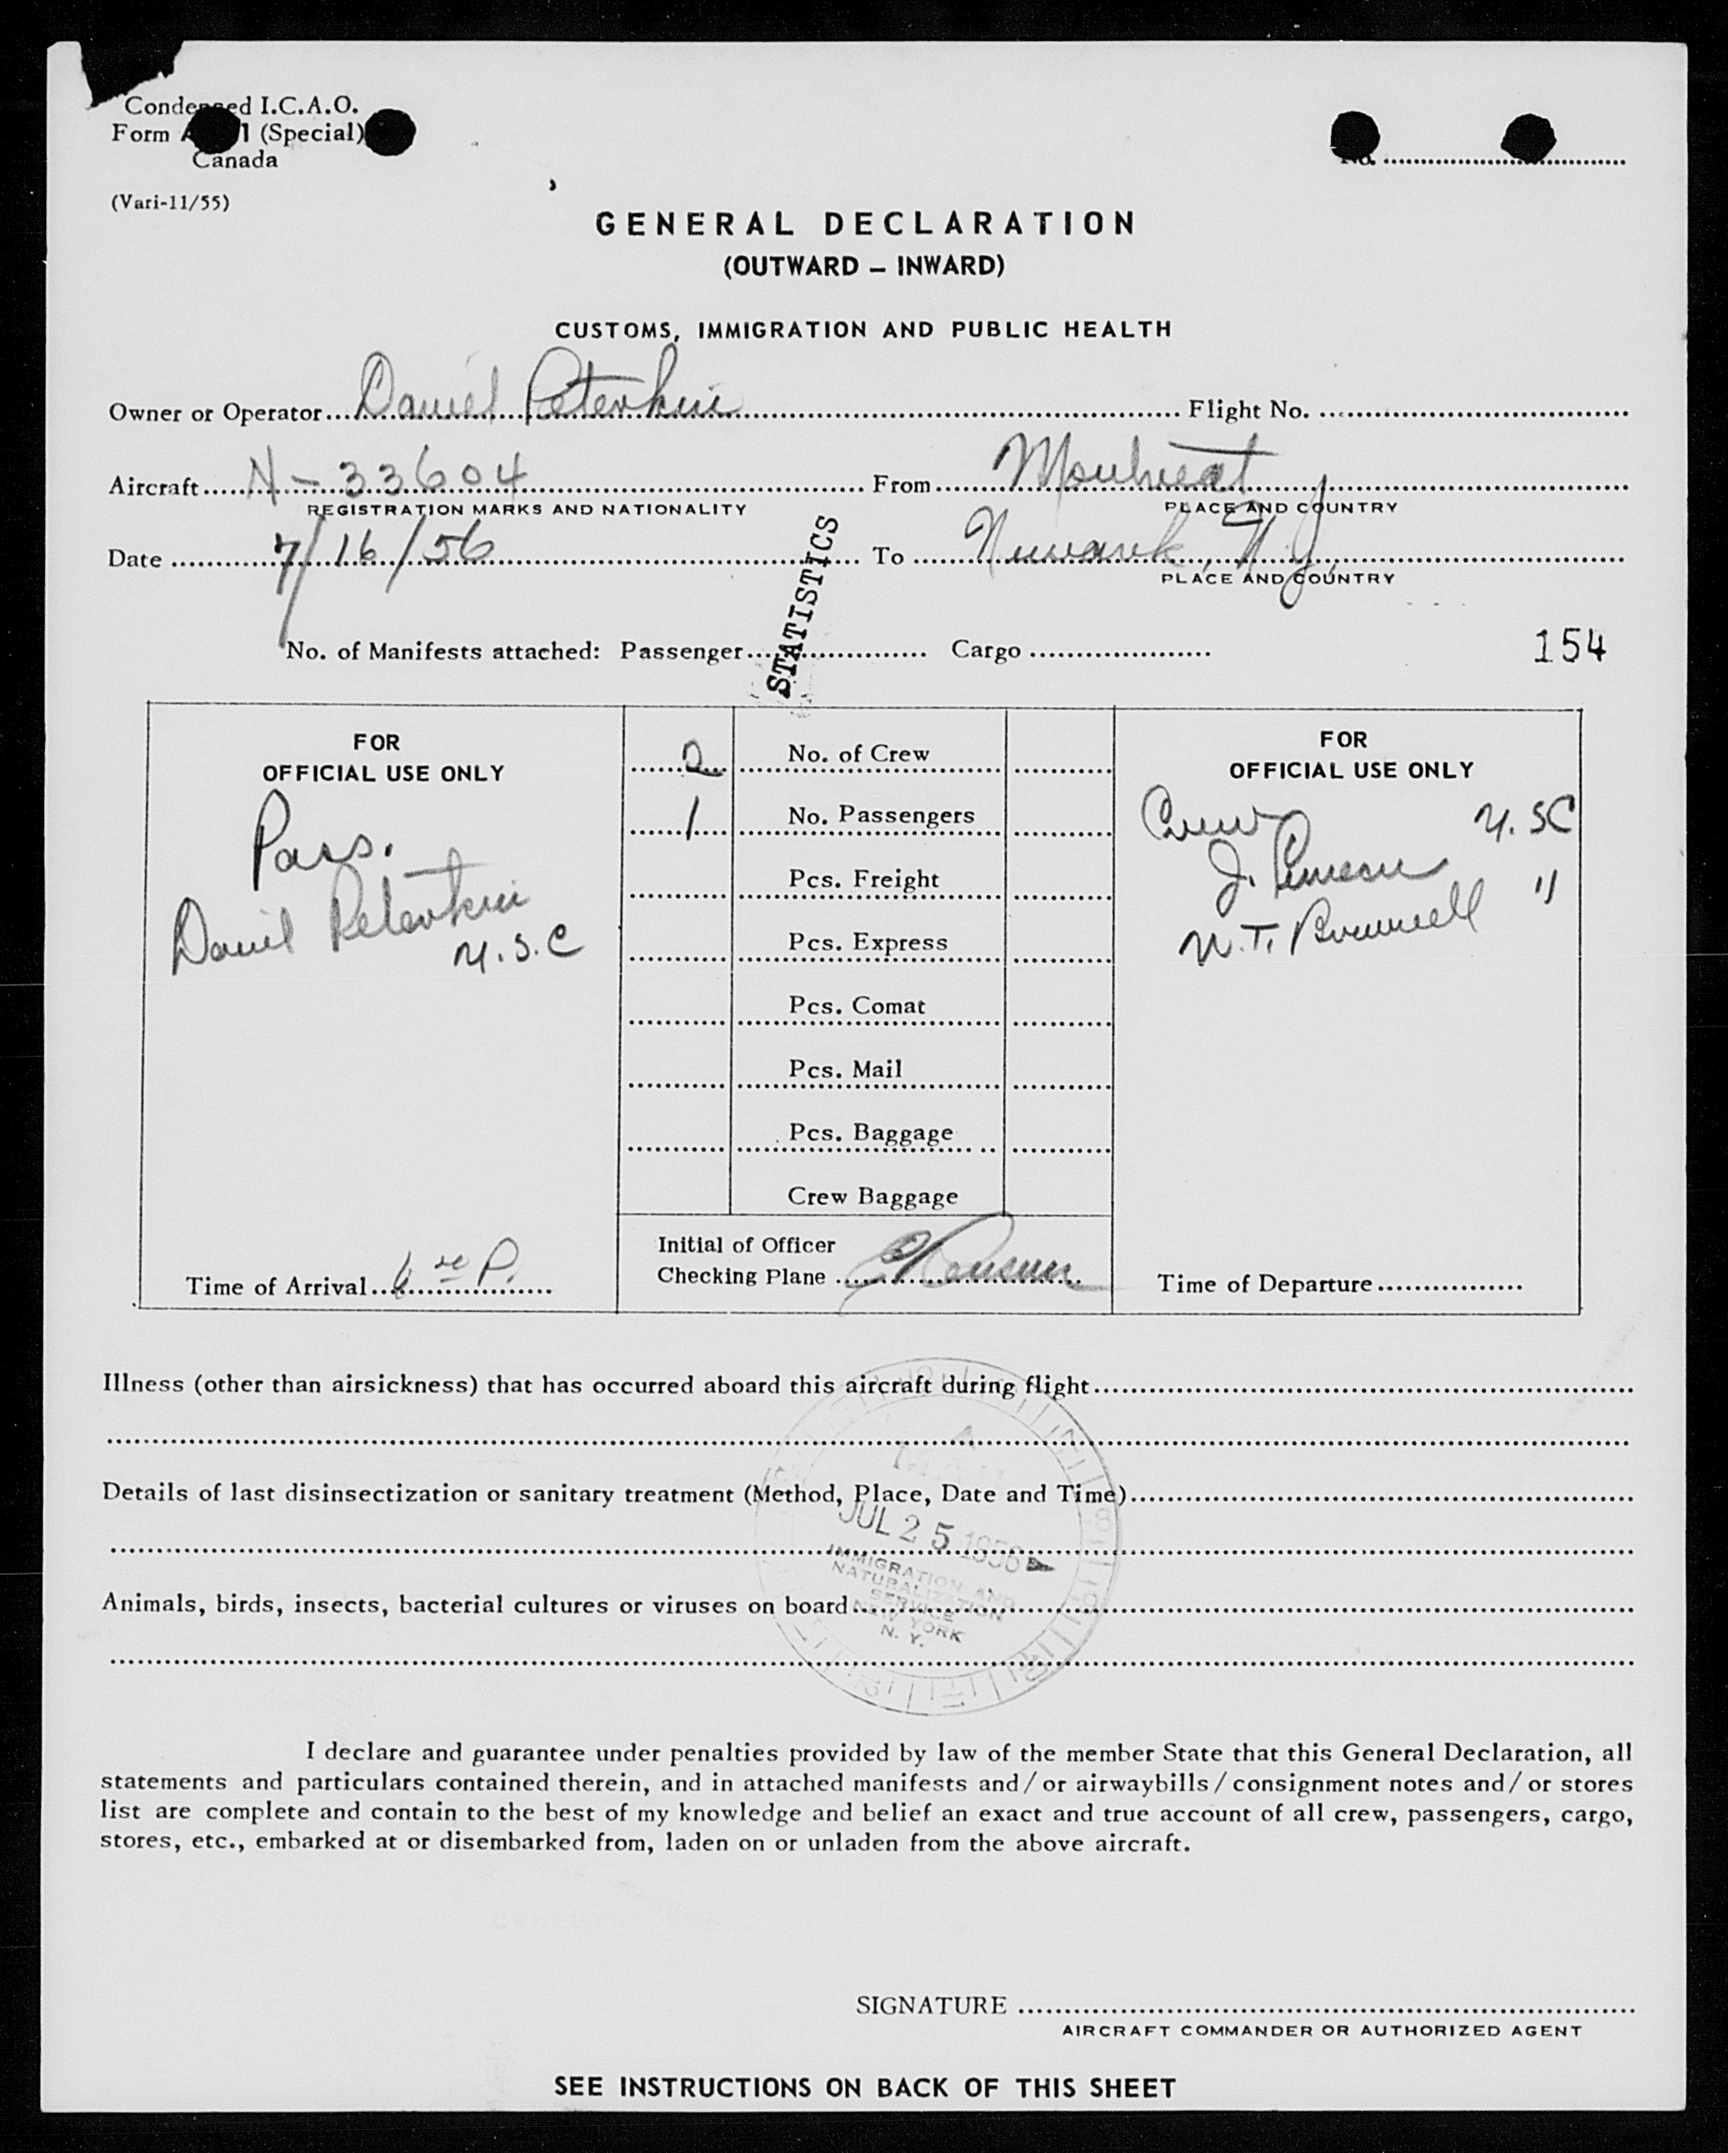 Condensed I.C.A.O.
Form 1 (Special)
Canada
No.
(Vari-11/55)
GENERAL DECLARATION
(OUTWARD – INWARD)
CUSTOMS, IMMIGRATION AND PUBLIC HEALTH
Owner or Operator Daniel Peterkin Flight No.
Aircraft N-33604 From Montreal
REGISTRATION MARKS AND NATIONALITY PLACE AND COUNTRY
Date 7/16/56 To Newark, N.J.
PLACE AND COUNTRY
STATISTICS
No. of Manifests attached: Passenger Cargo
154
FOR
OFFICIAL USE ONLY
Pass.
Daniel Peterkin
U.S.C
Time of Arrival 6 P.
2 No. of Crew
1 No. Passengers
Pcs. Freight
Pcs. Express
Pcs. Comat
Pcs. Mail
Pcs. Baggage
Crew Baggage
Initial of Officer
Checking Plane
FOR
OFFICIAL USE ONLY
Crew U.SC
J. "
W.T.
Time of Departure
Illness (other than airsickness) that has occurred aboard this aircraft during flight
Details of last disinsectization or sanitary treatment (Method, Place, Date and Time)
JUL 25 1956
IMMIGRATION AND
NATURALIZATION
SERVICE
NEW YORK
N. Y.
Animals, birds, insects, bacterial cultures or viruses on board
I declare and guarantee under penalties provided by law of the member State that this General Declaration, all
statements and particulars contained therein, and in attached manifests and/or airwaybills/consignment notes and/or stores
list are complete and contain to the best of my knowledge and belief an exact and true account of all crew, passengers, cargo,
stores, etc., embarked at or disembarked from, laden on or unladen from the above aircraft.
SIGNATURE
AIRCRAFT COMMANDER OR AUTHORIZED AGENT
SEE INSTRUCTIONS ON BACK OF THIS SHEET